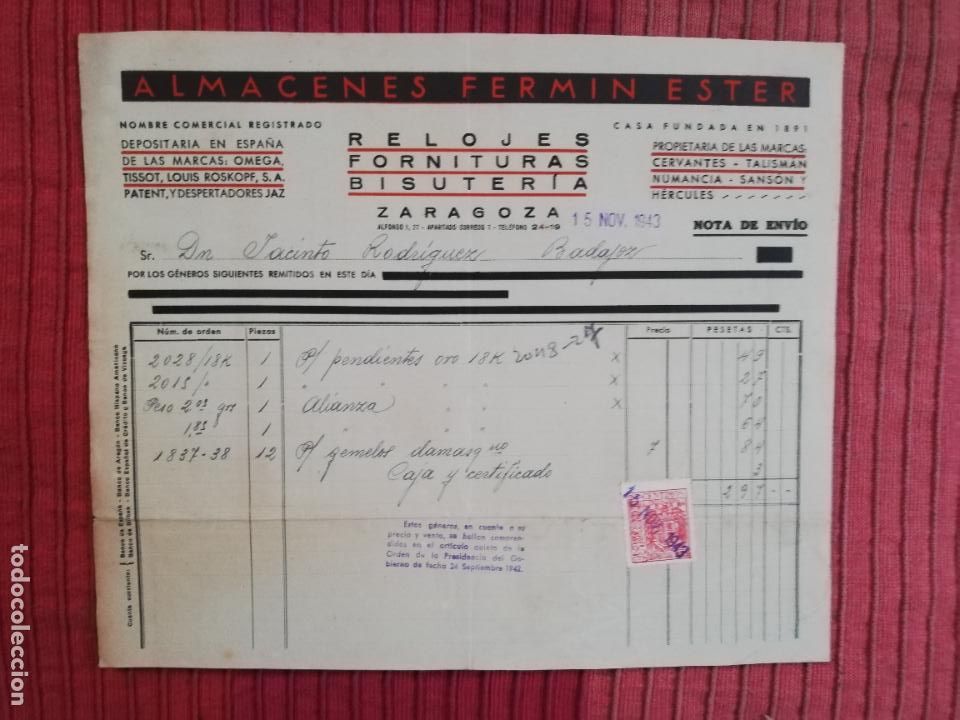 ALMACENES FERMIN ESTER
NOMBRE COMERCIAL REGISTRADO
DEPOSITARIA EN ESPAÑA
DE LAS MARCAS: OMEGA,
TISSOT, LOUIS ROSKOPF, S. A.
PATENT, Y DESPERTADORES JAZ
RELOJES
FORNITURAS
BISUTERÍA
ZARAGOZA
ALFONSO I, 27 - APARTADO CORREOS 7 - TELÉFONO 24-19
CASA FUNDADA EN 1891
PROPIETARIA DE LAS MARCAS:
CERVANTES - TALISMÁN
NUMANCIA - SANSÓN Y
HÉRCULES
15 NOV. 1943
NOTA DE ENVÍO
Sr. Dn Jacinto Rodríguez Badajoz
POR LOS GÉNEROS SIGUIENTES REMITIDOS EN ESTE DÍA
Núm. de orden Piezas Precio PESETAS CTS.
2028/18K 1 P/ pendientes oro 18K x 49
2015/" 1 " " " x 27
Peso 2.05 grs 1 Alianza " " x 70
1,85 1 64
1837-38 12 P/ gemelos damasqno 7 84
Caja y certificado 3
297 - -
Estos géneros, en cuanto a su
precio y venta, se hallan compren-
didos en el artículo quinto de la
Orden de la Presidencia del Go-
bierno de fecha 24 Septiembre 1942.
Cuenta corriente: Banco de España - Banco de Aragón - Banco Hispano Americano
Banco de Bilbao - Banco Español de Crédito y Banco de Vizcaya
todocoleccion